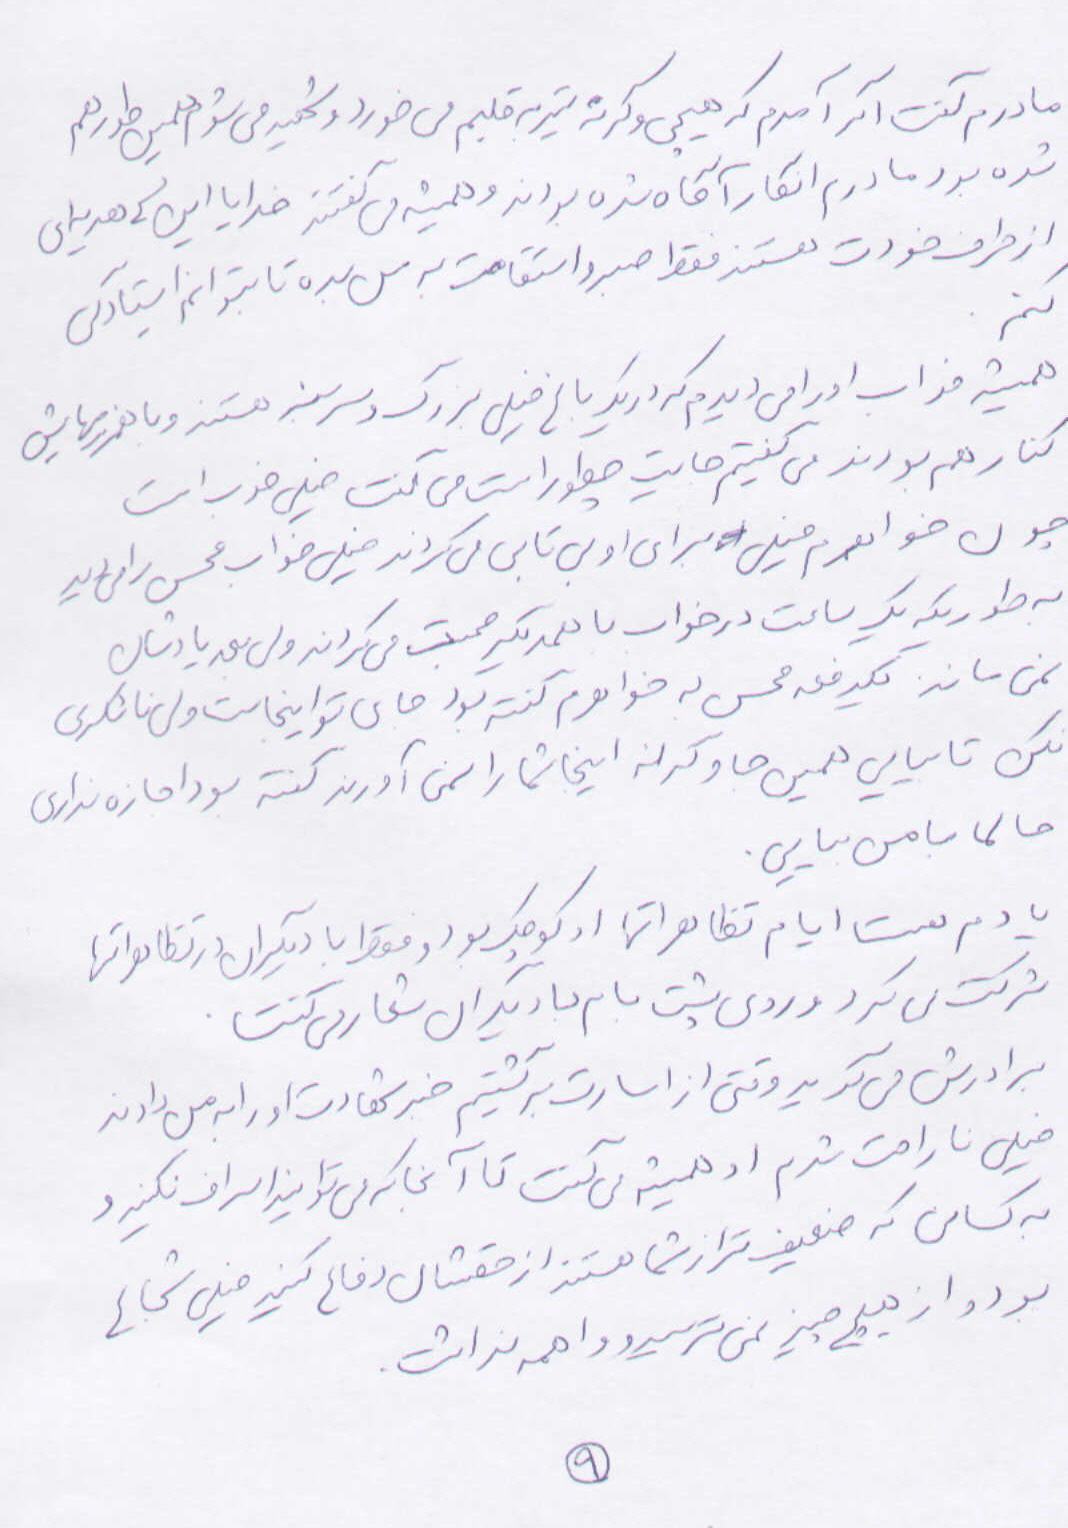 مادرم گفت اگر آمدم که هیچی وگرنه تیر به قلبم می خورد و شهید می شوم همین طور هم
شده بود مادرم انگار آگاه شده بودند و همیشه می گفتند خدایا این هدیه ای
از طرف خودت هستند فقط صبر و استقامت به من بده تا بتوانم ایستادگی
کنم.
همیشه خواب او را می دیدم که در یک باغ خیلی بزرگ و سرسبز هستند و با همرزمهایش
کنار هم بودند می گفتیم جایت چطور است می گفت خیلی خوب است
چون خواهرم خیلی برای او بی تابی می کردند خیلی خواب محسن را می دید
به طوریکه یک ساعت در خواب با همدیگر صحبت می کردند ولی بعد یادشان
نمی ماند. یکدفعه محسن به خواهرم گفته بود جای تو اینجاست ولی ناشکری
نکن تا بیایی همین جا وگرنه اینجا شما را نمی آورند گفته بود اجازه نداری
حالا با من بیایی.
یادم هست ایام تظاهراتها او کوچک بود و فقط با دیگران در تظاهراتها
شرکت می کرد و روی پشت بام با دیگران شعار می گفت.
برادرش می گوید وقتی از اسارت برگشتیم خبر شهادت او را به من دادند
خیلی ناراحت شدم او همیشه می گفت تا آنجا که می توانید اسراف نکنید و
به کسانی که ضعیف تر از شما هستند از حقشان دفاع کنید خیلی شجاع
بود و از هیچ چیز نمی ترسید و واهمه نداشت.
۹